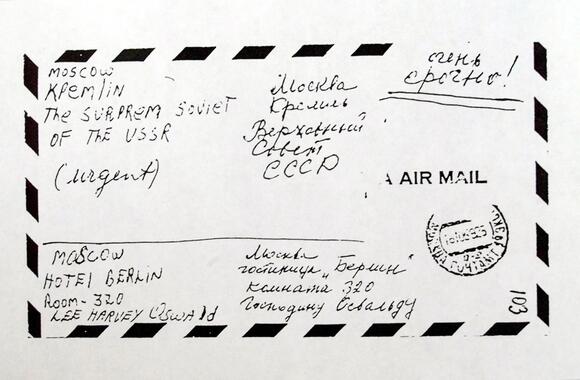 MOSCOW
KPEMLIN
The SURPREM SOVIET
OF THE USSR
(urgent)
Москва
Кремль
Верховный
Совет
СССР
очень
срочно!
A AIR MAIL
MOSCOW
HOTEL BERLIN
ROOM-320
LEE HARVEY OSWALD
Москва
гостиница „Берлин"
комната 320
Господину Освальду
103